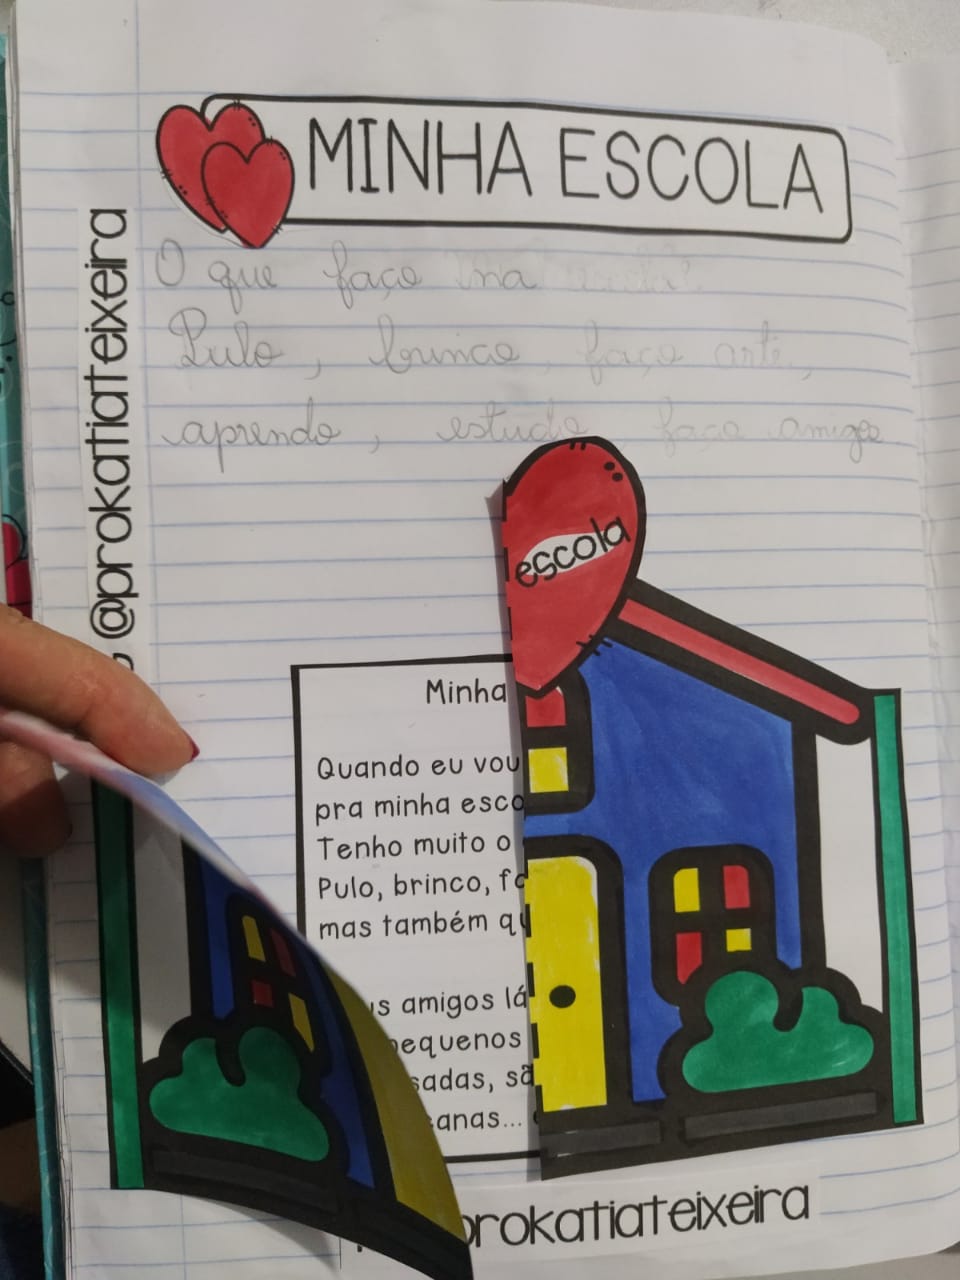 MINHA ESCOLA
O que faço na
Pulo, brinco, faço arte,
aprendo, estudo faço amigos
@prokatiateixeira
escola
Minha
Quando eu vou
pra minha esco
Tenho muito o
Pulo, brinco, fa
mas também qu
s amigos lá
equenos
sadas, sã
anas...
prokatiateixeira